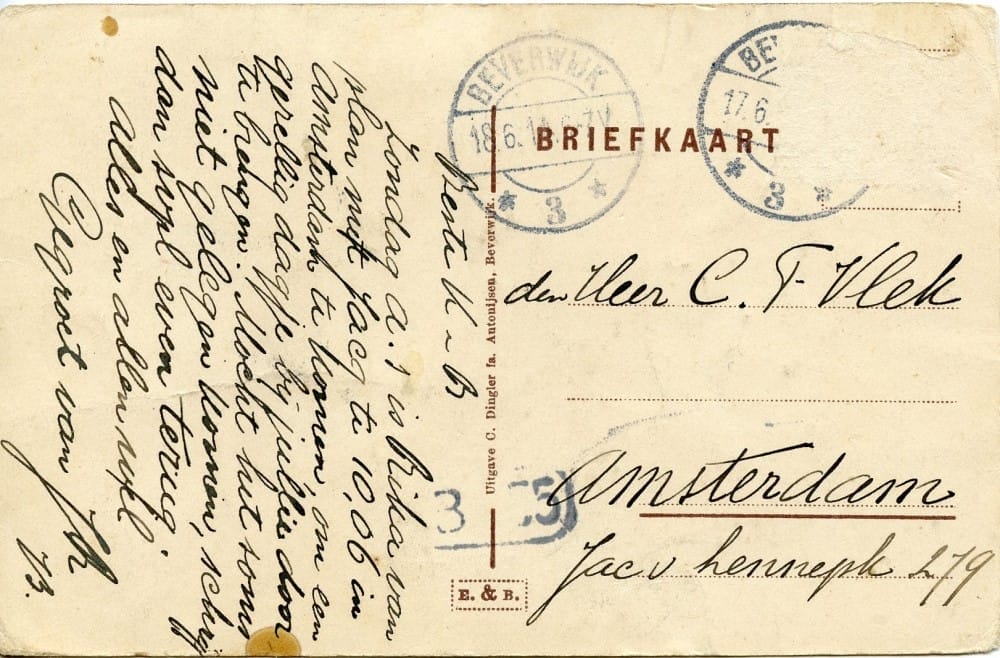 BRIEFKAART
BEVERWIJK
18.6.14.6-7V
3
BEV
17.6.
3
den Heer C. F. Vlek
Amsterdam
Jac v Lennepk 279
3
5
E. & B.
Uitgave C. Dingler fa. Antonijsen, Beverwijk.
Beste K - B
Zondag a.s is Rika van
plan met Jacq te 10,06 in
Amsterdam te komen, om een
gezellig dagje by jullie door
te brengen. Mocht het soms
niet gelegen komen, schryf
dan svpl even terug.
Alles en allen wel
Gegroet van
B.